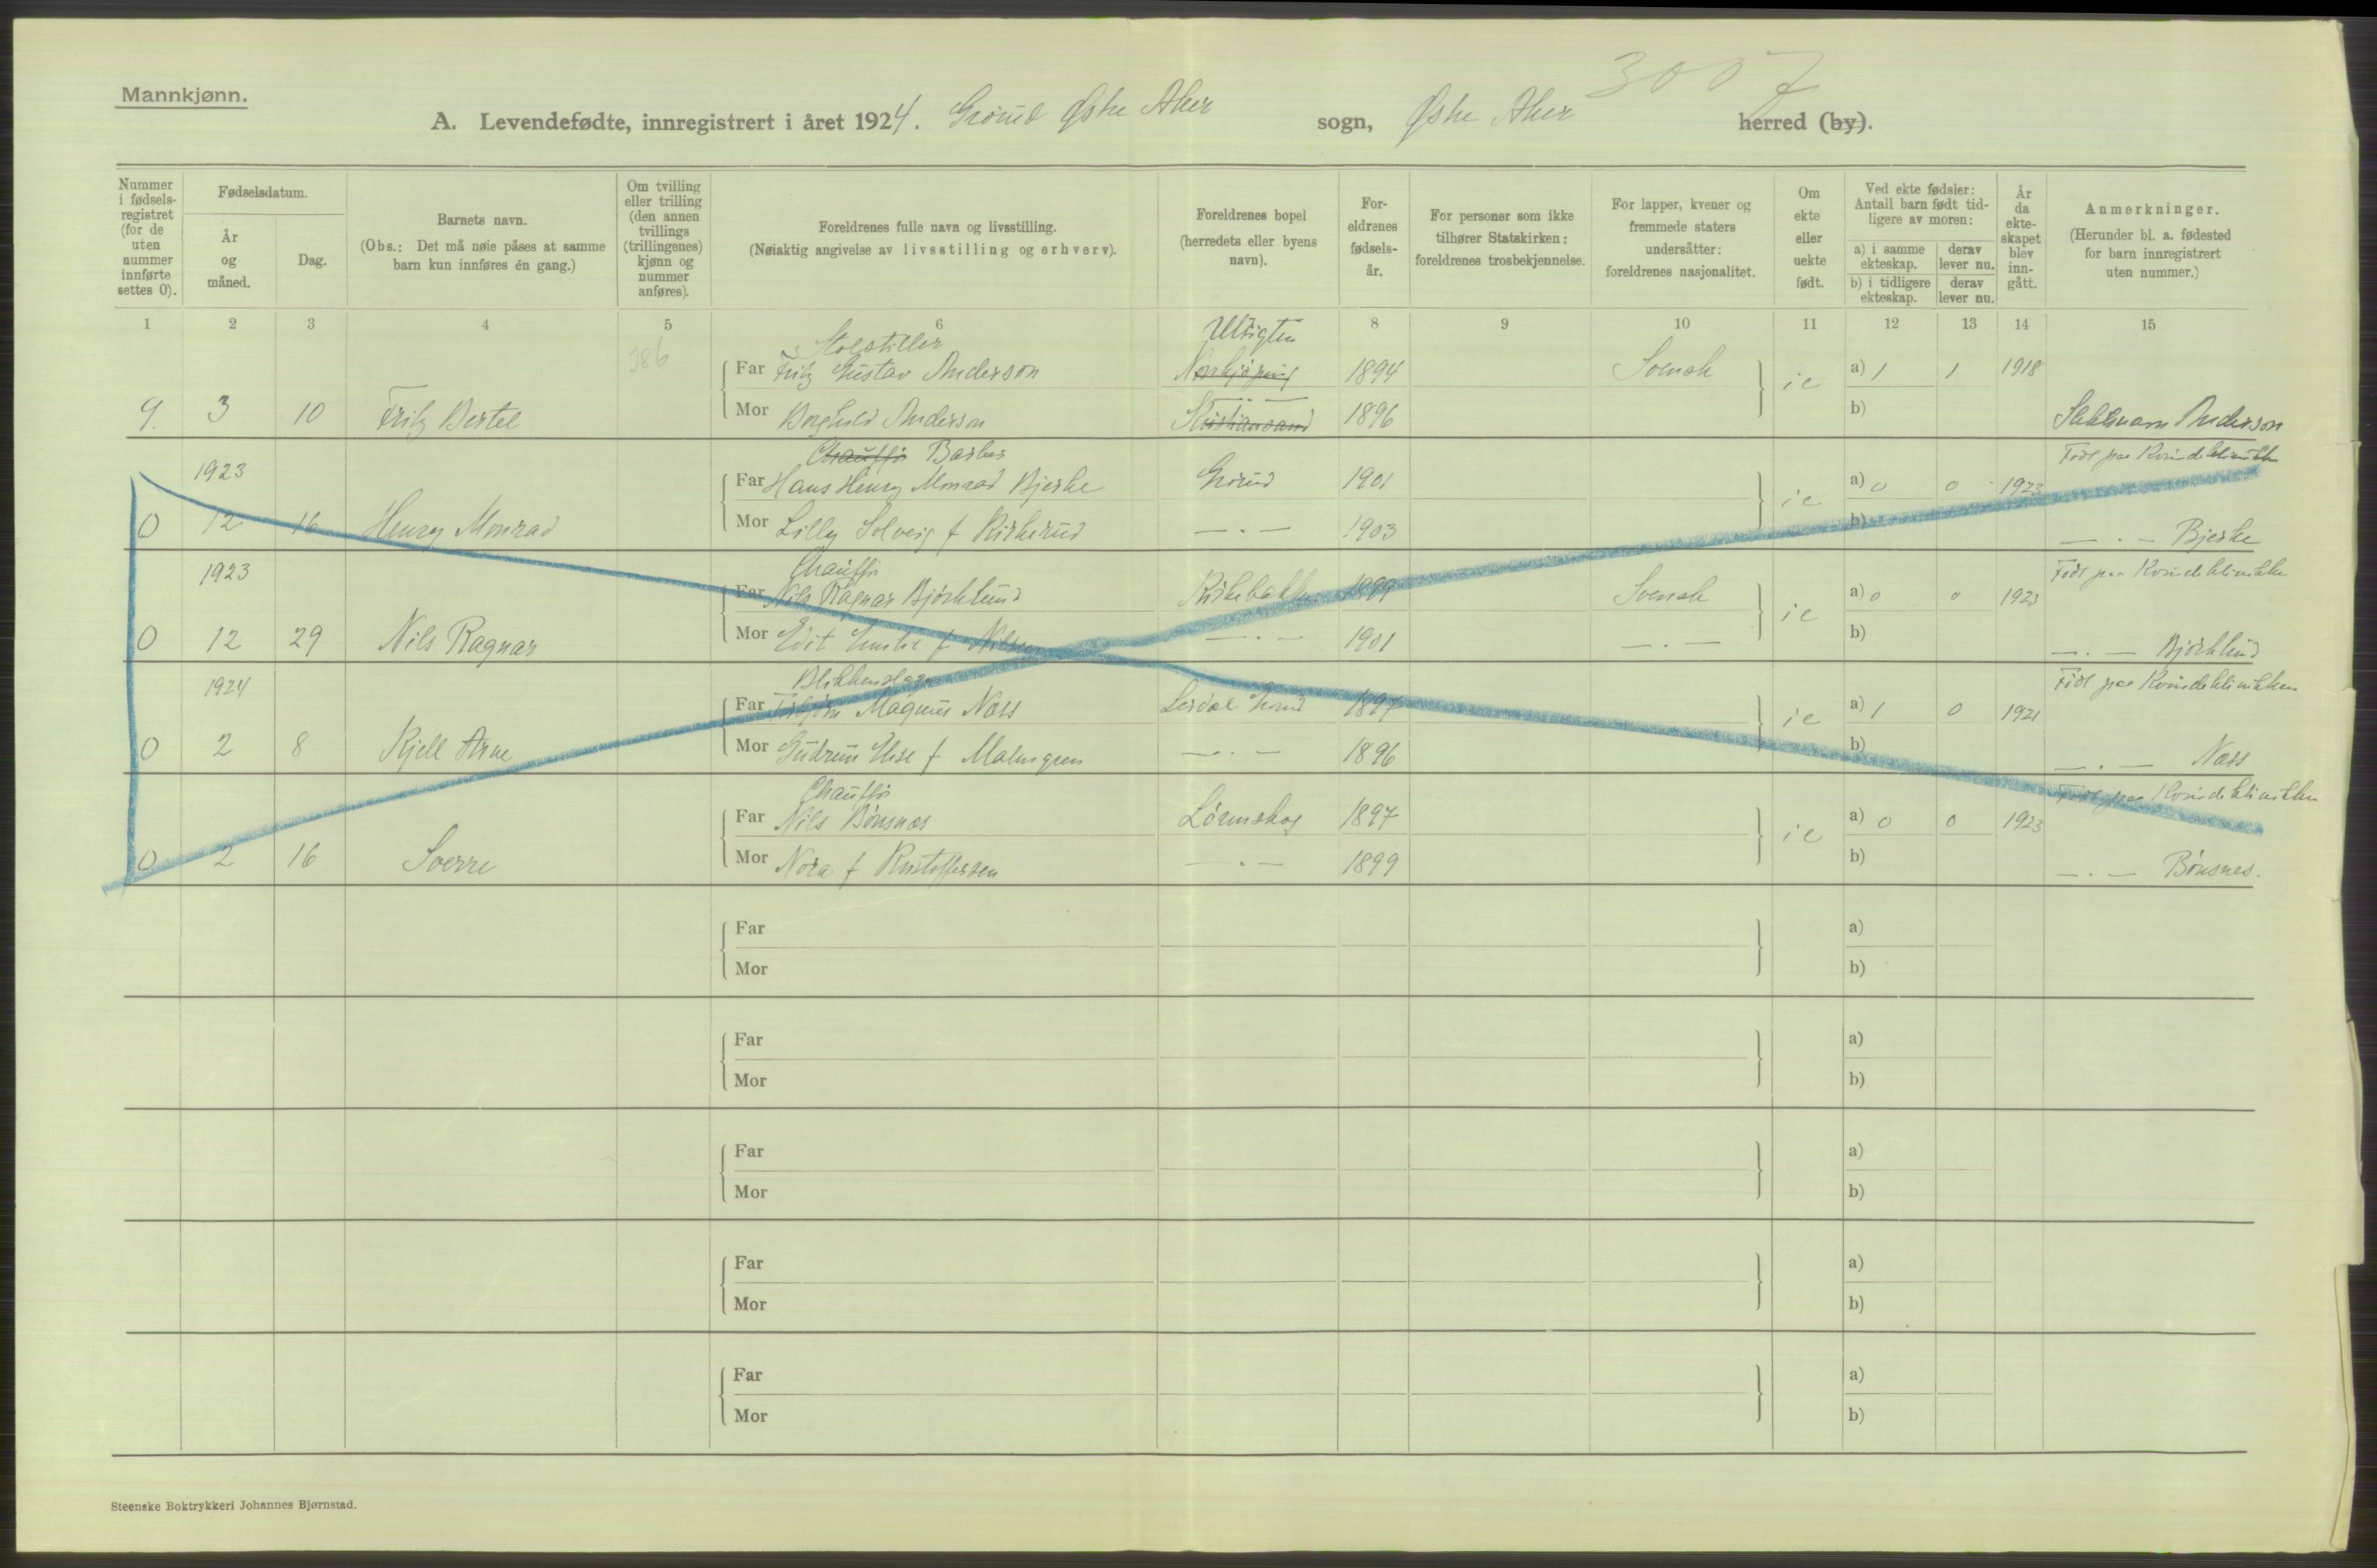 3007
Mannkjønn.
A. Levendefødte, innregistrert i året 1924. Grorud Østre Aker sogn, Østre Aker herred (by).
Nummer i fødsels- registret (for de uten nummer innførte settes 0).
Fødselsdatum.
År og måned.
Dag.
Barnets navn.
(Obs.: Det må nøie påses at samme barn kun innføres én gang.)
Om tvilling eller trilling (den annen tvillings (trillingenes) kjønn og nummer anføres).
Foreldrenes fulle navn og livsstilling.
(Nøiaktig angivelse av livsstilling og erhverv).
Foreldrenes bopel (herredets eller byens navn).
For- eldrenes fødsels- år.
For personer som ikke tilhører Statskirken: foreldrenes trosbekjennelse.
For lapper, kvener og fremmede staters undersåtter: foreldrenes nasjonalitet.
Om ekte eller uekte født.
Ved ekte fødsler: Antall barn født tid- ligere av moren:
a) i samme ekteskap.
derav lever nu.
b) i tidligere ekteskap.
derav lever nu.
År da ekte- skapet blev inn- gått.
Anmerkninger.
(Herunder bl. a. fødested for barn innregistrert uten nummer.)
1 2 3 4 5 6 8 9 10 11 12 13 14 15
386
Utsigten
Far Fritz Gustav Anderson Norrkjøping 1894 Svensk a) 1 1 1918
9. 3 10 Fritz Bertel Mor Borghild Anderson Kristiansand 1896 b) Anderson
Chauffør Barber
1923 Far Hans Henry Monrad Bjerke Grorud 1901 a) 0 0 1923 Født paa Kvindeklinikken
0 12 16 Henry Monrad Mor Lilly Solveig f Kirkerud — . — 1903 b) — . — Bjerke
Chauffør
1923 Far Nils Ragnar Bjørklund 1899 Svensk a) 0 0 1923 Født paa Kvindeklinikken
0 12 29 Nils Ragnar Mor Edit Emilie f Nilsen — . — 1901 — . — b) — . — Bjørklund
Blikkenslager
1924 Far Magnus Næss 1897 a) 1 0 1921 Født paa Kvindeklinikken
0 2 8 Kjell Arne Mor Gudrun Else f Malmgren — . — 1896 b) — . — Næss
Chauffør
Far Nils Bønsnes Lørenskog 1897 a) 0 0 1923 Født paa Kvindeklinikken
0 2 16 Sverre Mor Nora f Kristoffersen — . — 1899 b) — . — Bønsnes.
Far a)
Mor b)
Far a)
Mor b)
Far a)
Mor b)
Far a)
Mor b)
Far a)
Mor b)
Steenske Boktrykkeri Johannes Bjørnstad.